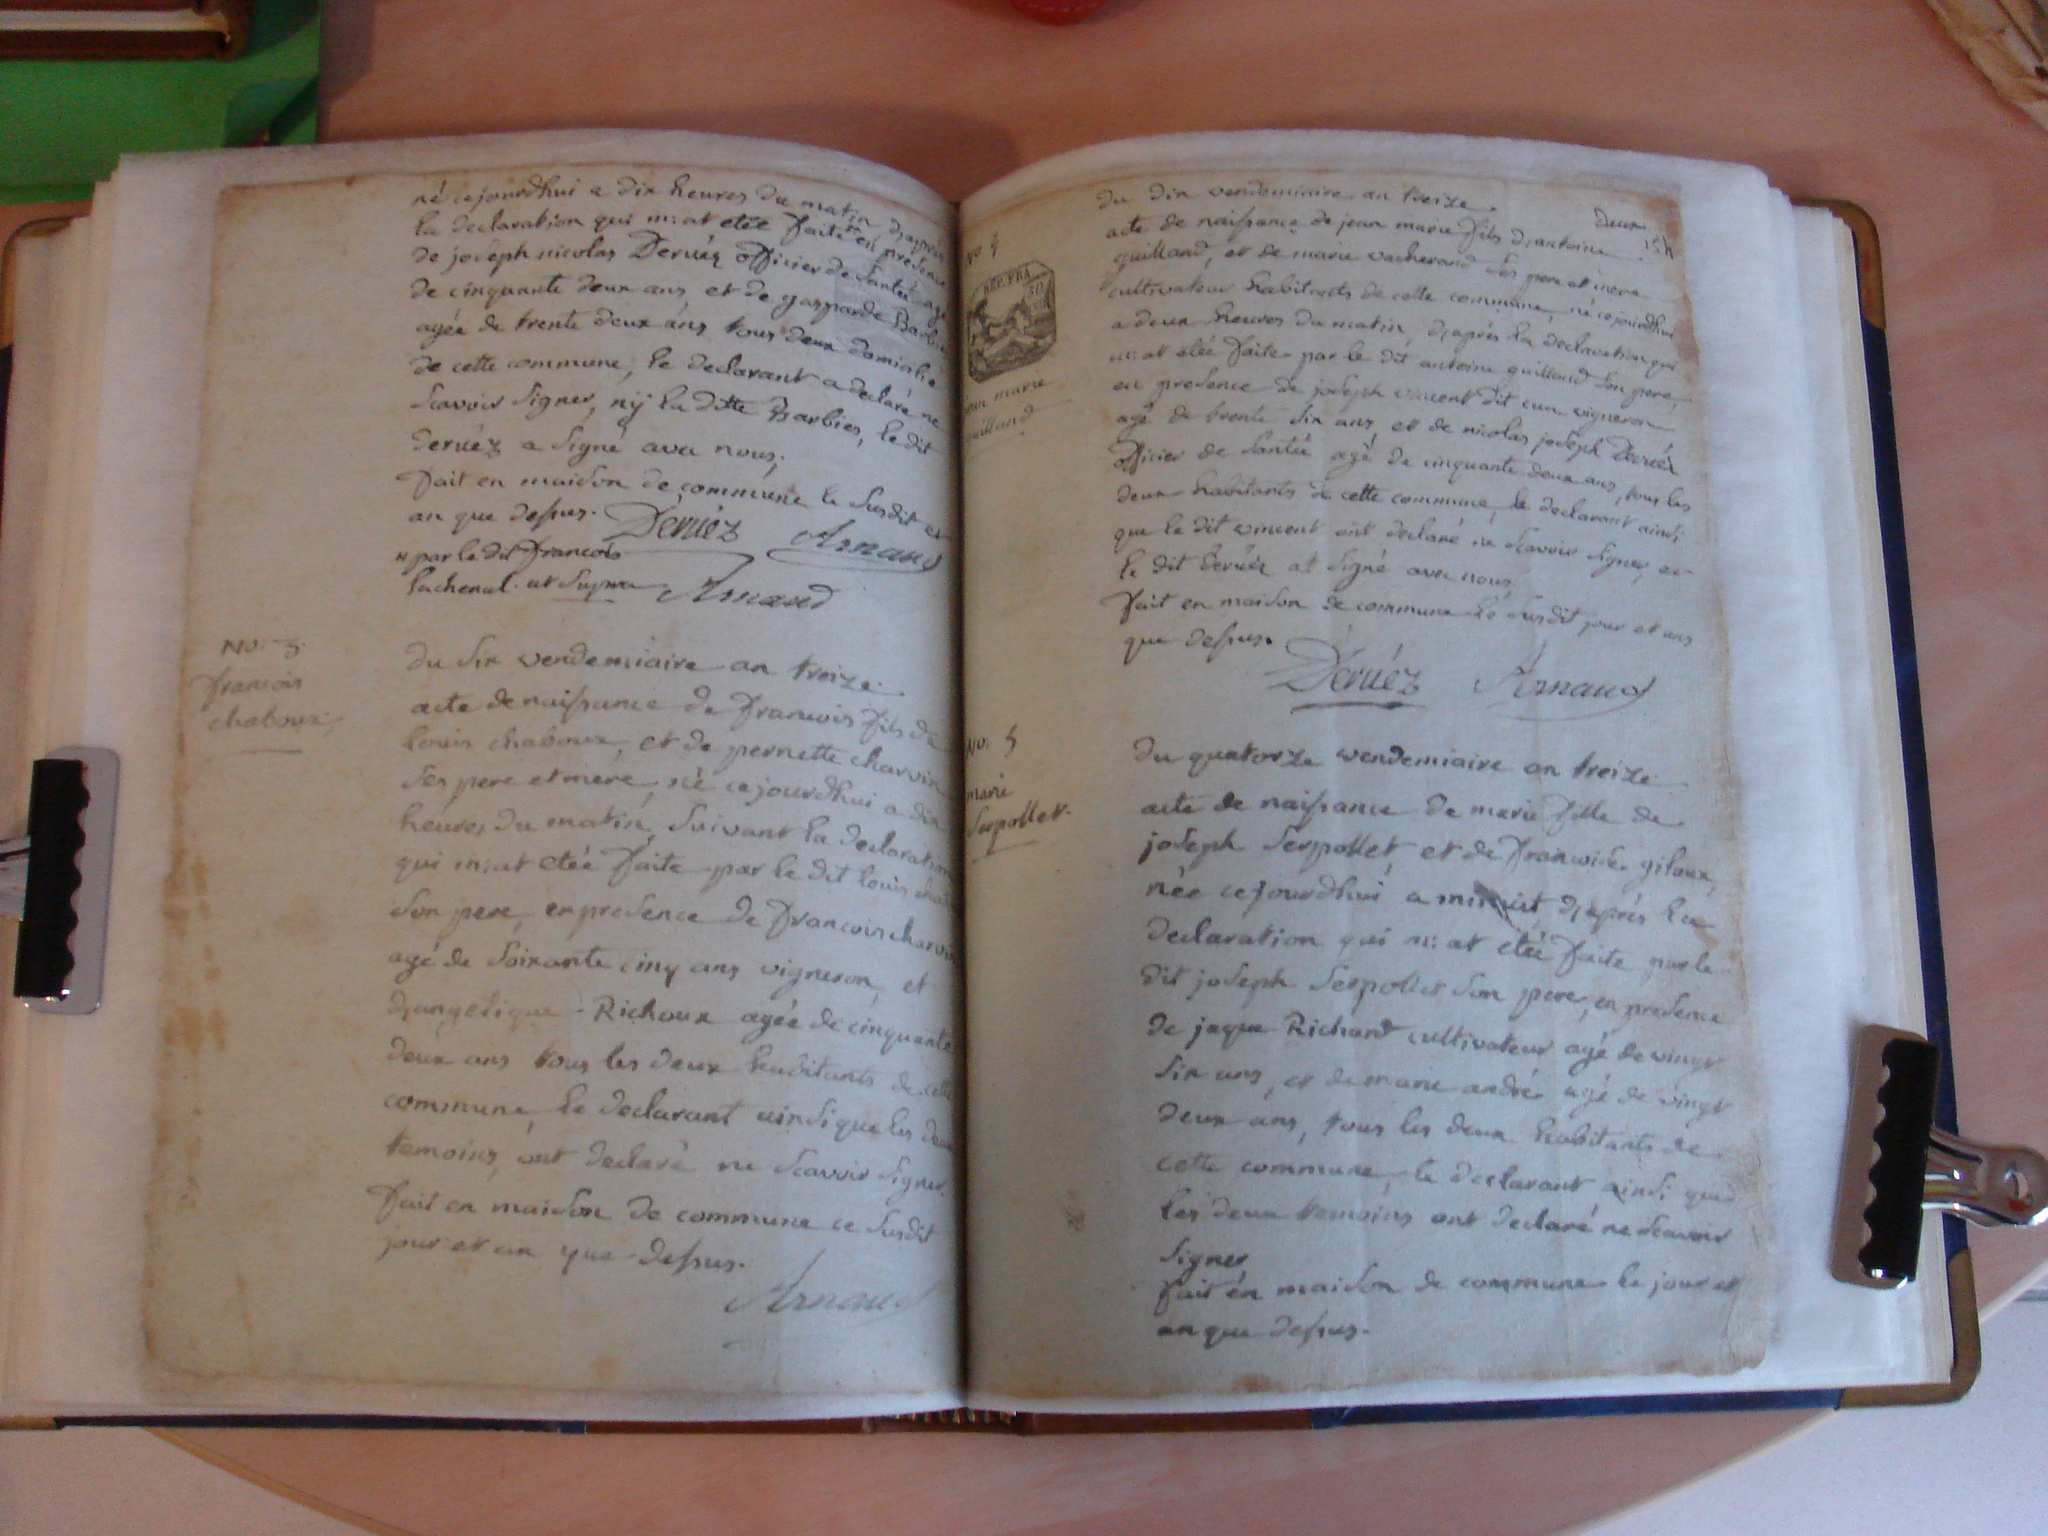 né cejourdhui a dix heures du matin d,après
la declaration qui m: at etée faite en presence
de joseph nicolas Deruéz officier de Santée agé
de cinquante deux ans, et de gasparde Barbier
agée de trente deux ans tous deux domicilié
de cette commune, le declarant a declaré ne
Scavoir Signer, n'y la ditte Barbier, le dit
Deruéz a Signé avec nous,
fait en maison de commune le Susdit et
an que dessus. Deruéz Arnaud
par le dit francois
lachenal. ut Supra Arnaud
No. 3.
francois
chaboux,
du Six vendemiaire an treize.
acte de naissance de francois fils de
louis chaboux, et de pernette charvin
Ses pere et mere, né cejourdhui a dix
heures du matin, Suivant la declaration
qui m: at etée faite par le dit louis
Son pere, en presence de francois charvin
agé de Soixante cinq ans vigneron, et
d,angelique Richoux agée de cinquante
deux ans tous les deux habitants de cette
commune, le declarant ainsi que les deux
temoins, ont declaré ne Scavoir Signer.
fait en maison de commune ce Susdit
jour et an que dessus.
Arnaud
deux
No 4
REP. FRA
50
jean marie
guilland
du dix vendemiaire an treize.
acte de naissance de jean marie fils d,antoine
guilland, et de marie vacherand Ses pere et mere
cultivateur habitants de cette commune, né cejourdhui
a deux heures du matin, d,après la declaration qui
m: at etée faite par le dit antoine guilland Son pere,
en presence de joseph vincent dit vigneron
agé de trente Six ans, et de nicolas joseph Deruéz
officier de Santée agé de cinquante deux ans, tous les
deux habitants de cette commune, le declarant ainsi
que le dit vincent ont declaré ne Scavoir Signer, et
le dit Deruéz at Signé avec nous,
fait en maison de commune le Susdit jour et ans
que dessus.
Deruéz Arnaud
No. 5
marie
Serpollet.
du quatorze vendemiaire an treize.
acte de naissance de marie fille de
joseph Serpollet, et de francoise giloux,
née cejourdhui a minuit, d,après la
declaration qui m: at etée faite par le
dit joseph Serpollet Son pere, en presence
de jaque Richard cultivateur agé de vingt
Six ans, et de marie andré agé de vingt
deux ans, tous les deux habitants de
cette commune, le declarant ainsi que
les deux temoins ont declaré ne Scavoir
Signer
fait en maison de commune le jour et
an que dessus.